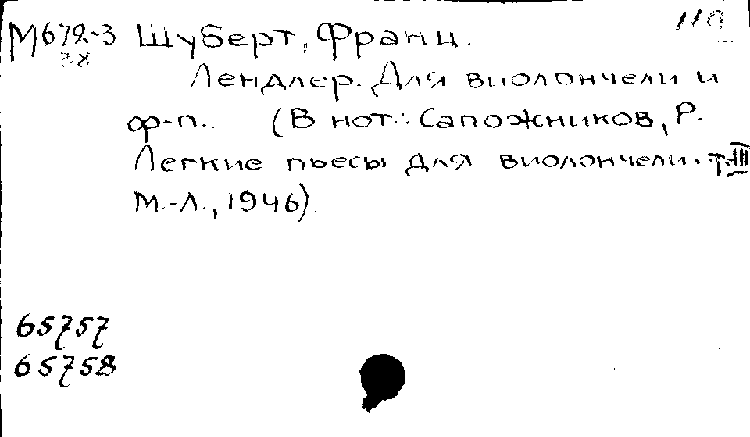 М672-3 Шуберт, Франц. 110
Лендлер. Для виолончели и
ф-п. (В нот.: Сапожников, Р.
Легкие пьесы для виолончели. т.III
М.-Л., 1946).
65757
65758